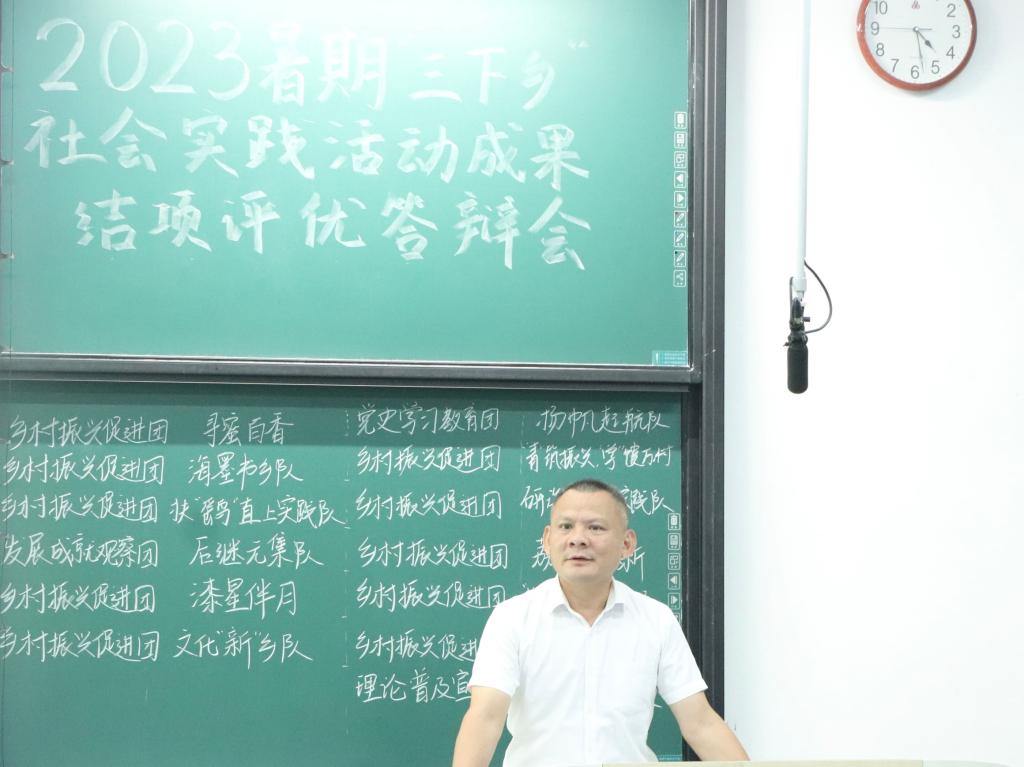 2023暑期"三下乡"
社会实践活动成果
结项评优答辩会
乡村振兴促进团 寻蜜百香
乡村振兴促进团 海墨书乡队
乡村振兴促进团 扶"鹞"直上实践队
发展成就观察团 后继元集队
乡村振兴促进团 漆星伴月
乡村振兴促进团 文化"新"乡队
党史学习教育团 扬帆起航队
乡村振兴促进团 "青"筑振兴,"学"馈万村
乡村振兴促进团 研 实践队
乡村振兴促进团 新
乡村振兴促进团
乡村振兴促
理论普及宣
10 2 9 3 8 4 7 6 5